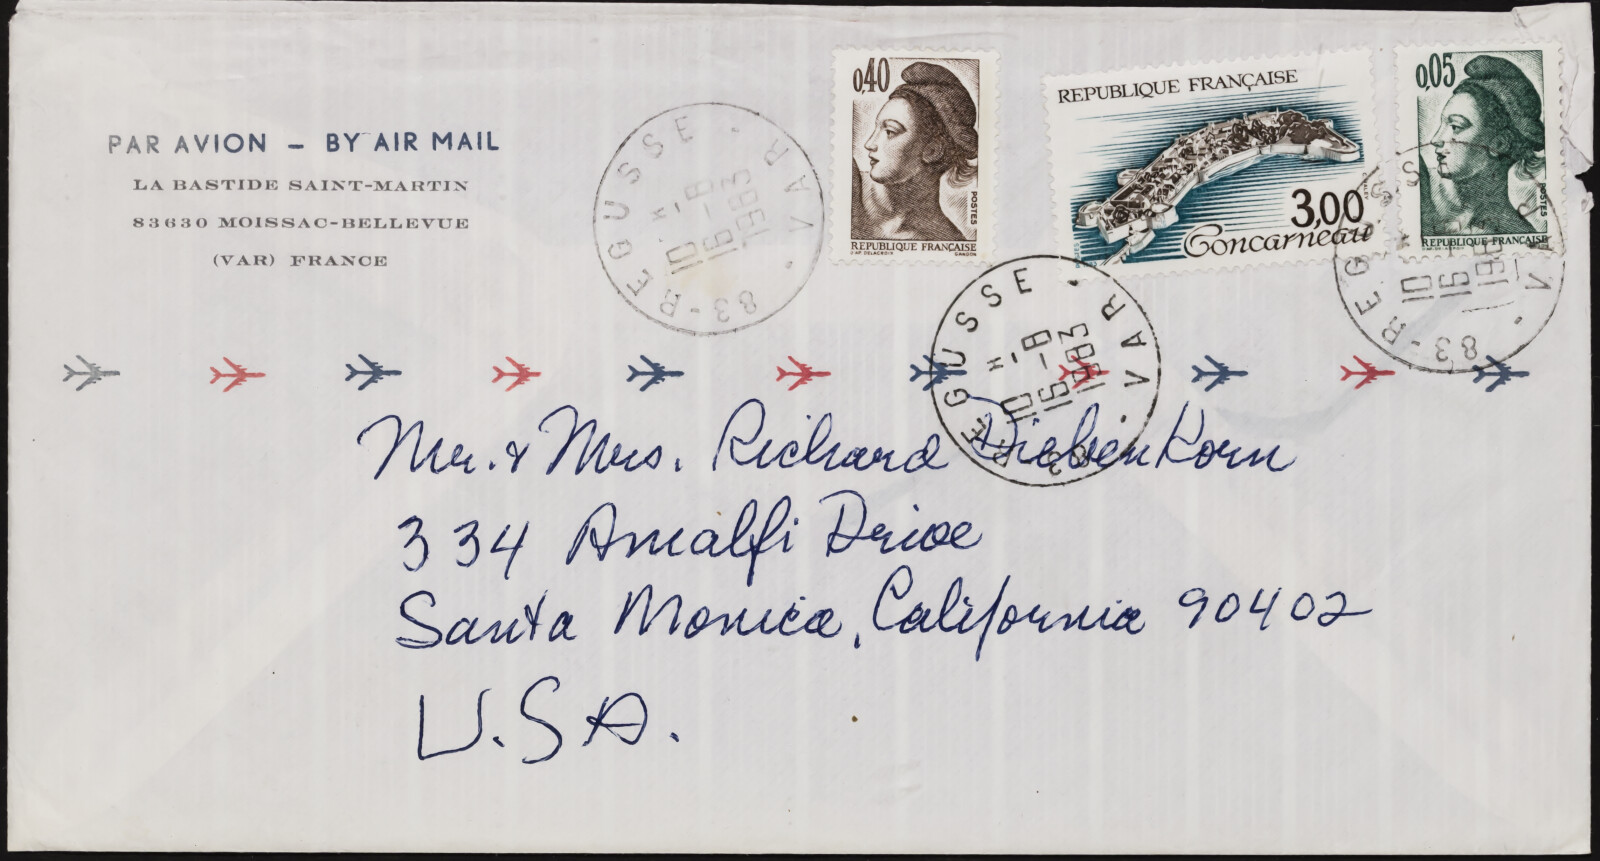 PAR AVION – BY AIR MAIL
LA BASTIDE SAINT-MARTIN
83630 MOISSAC-BELLEVUE
(VAR) FRANCE
83-REGUSSE · VAR ·
10 H
16-8
1983
0,40
POSTES
REPUBLIQUE FRANÇAISE
D'AP. DELACROIX GANDON
REPUBLIQUE FRANÇAISE
3,00
Concarneau
0,05
POSTES
REPUBLIQUE FRANÇAISE
83-REGUSSE · VAR ·
10 H
16-8
1983
83-REGUSSE · VAR ·
10 H
16
19
Mr. & Mrs. Richard Diebenkorn
334 Amalfi Drive
Santa Monica, California 90402
U.S.A.